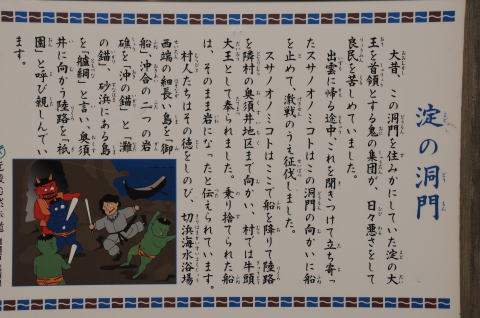 淀の洞門
大昔、この洞門を住みかにしていた淀の大
王を首領とする鬼の集団が、日々悪さをして
良民を苦しめていました。
出雲に帰る途中、これを聞きつけて立ち寄っ
たスサノオノミコトはこの洞門の向かいに船
を止めて、激戦のうえ征伐しました。
スサノオノミコトはここで船を降りて陸路
を隣村の奥須井地区まで向かい、村では牛頭
大王として奉られました。乗り捨てられた船
は、そのまま岩になったと伝えられています。
村人たちはその徳をしのび、切浜海水浴場
西端の細長い島を「御
船」、沖合の二つの岩
礁を「沖の錨」と「灘
の錨」、砂浜にある島
を「艫綱」と言い、奥須
井に向かう陸路を「祇
園」と呼び親しんでい
ます。